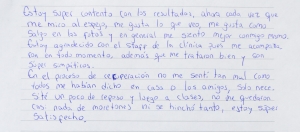 Estoy super contenta con los resultados, ahora cada vez que
me miro al espejo, me gusta lo que veo, me gusta como
salgo en las fotos y en general me siento mejor conmigo misma.
Estoy agradecida con el staff de la clínica que me acompaña
ron en todo momento, además que me trataron bien y son
super simpáticos.
En el proceso de recuperación no me sentí tan mal como
todos me habían dicho en casa o los amigos, solo nece
sité un poco de reposo y luego a clases, no me quedaron
casi nada de moretones ni se hinchó tanto, estoy súper
satisfecha.